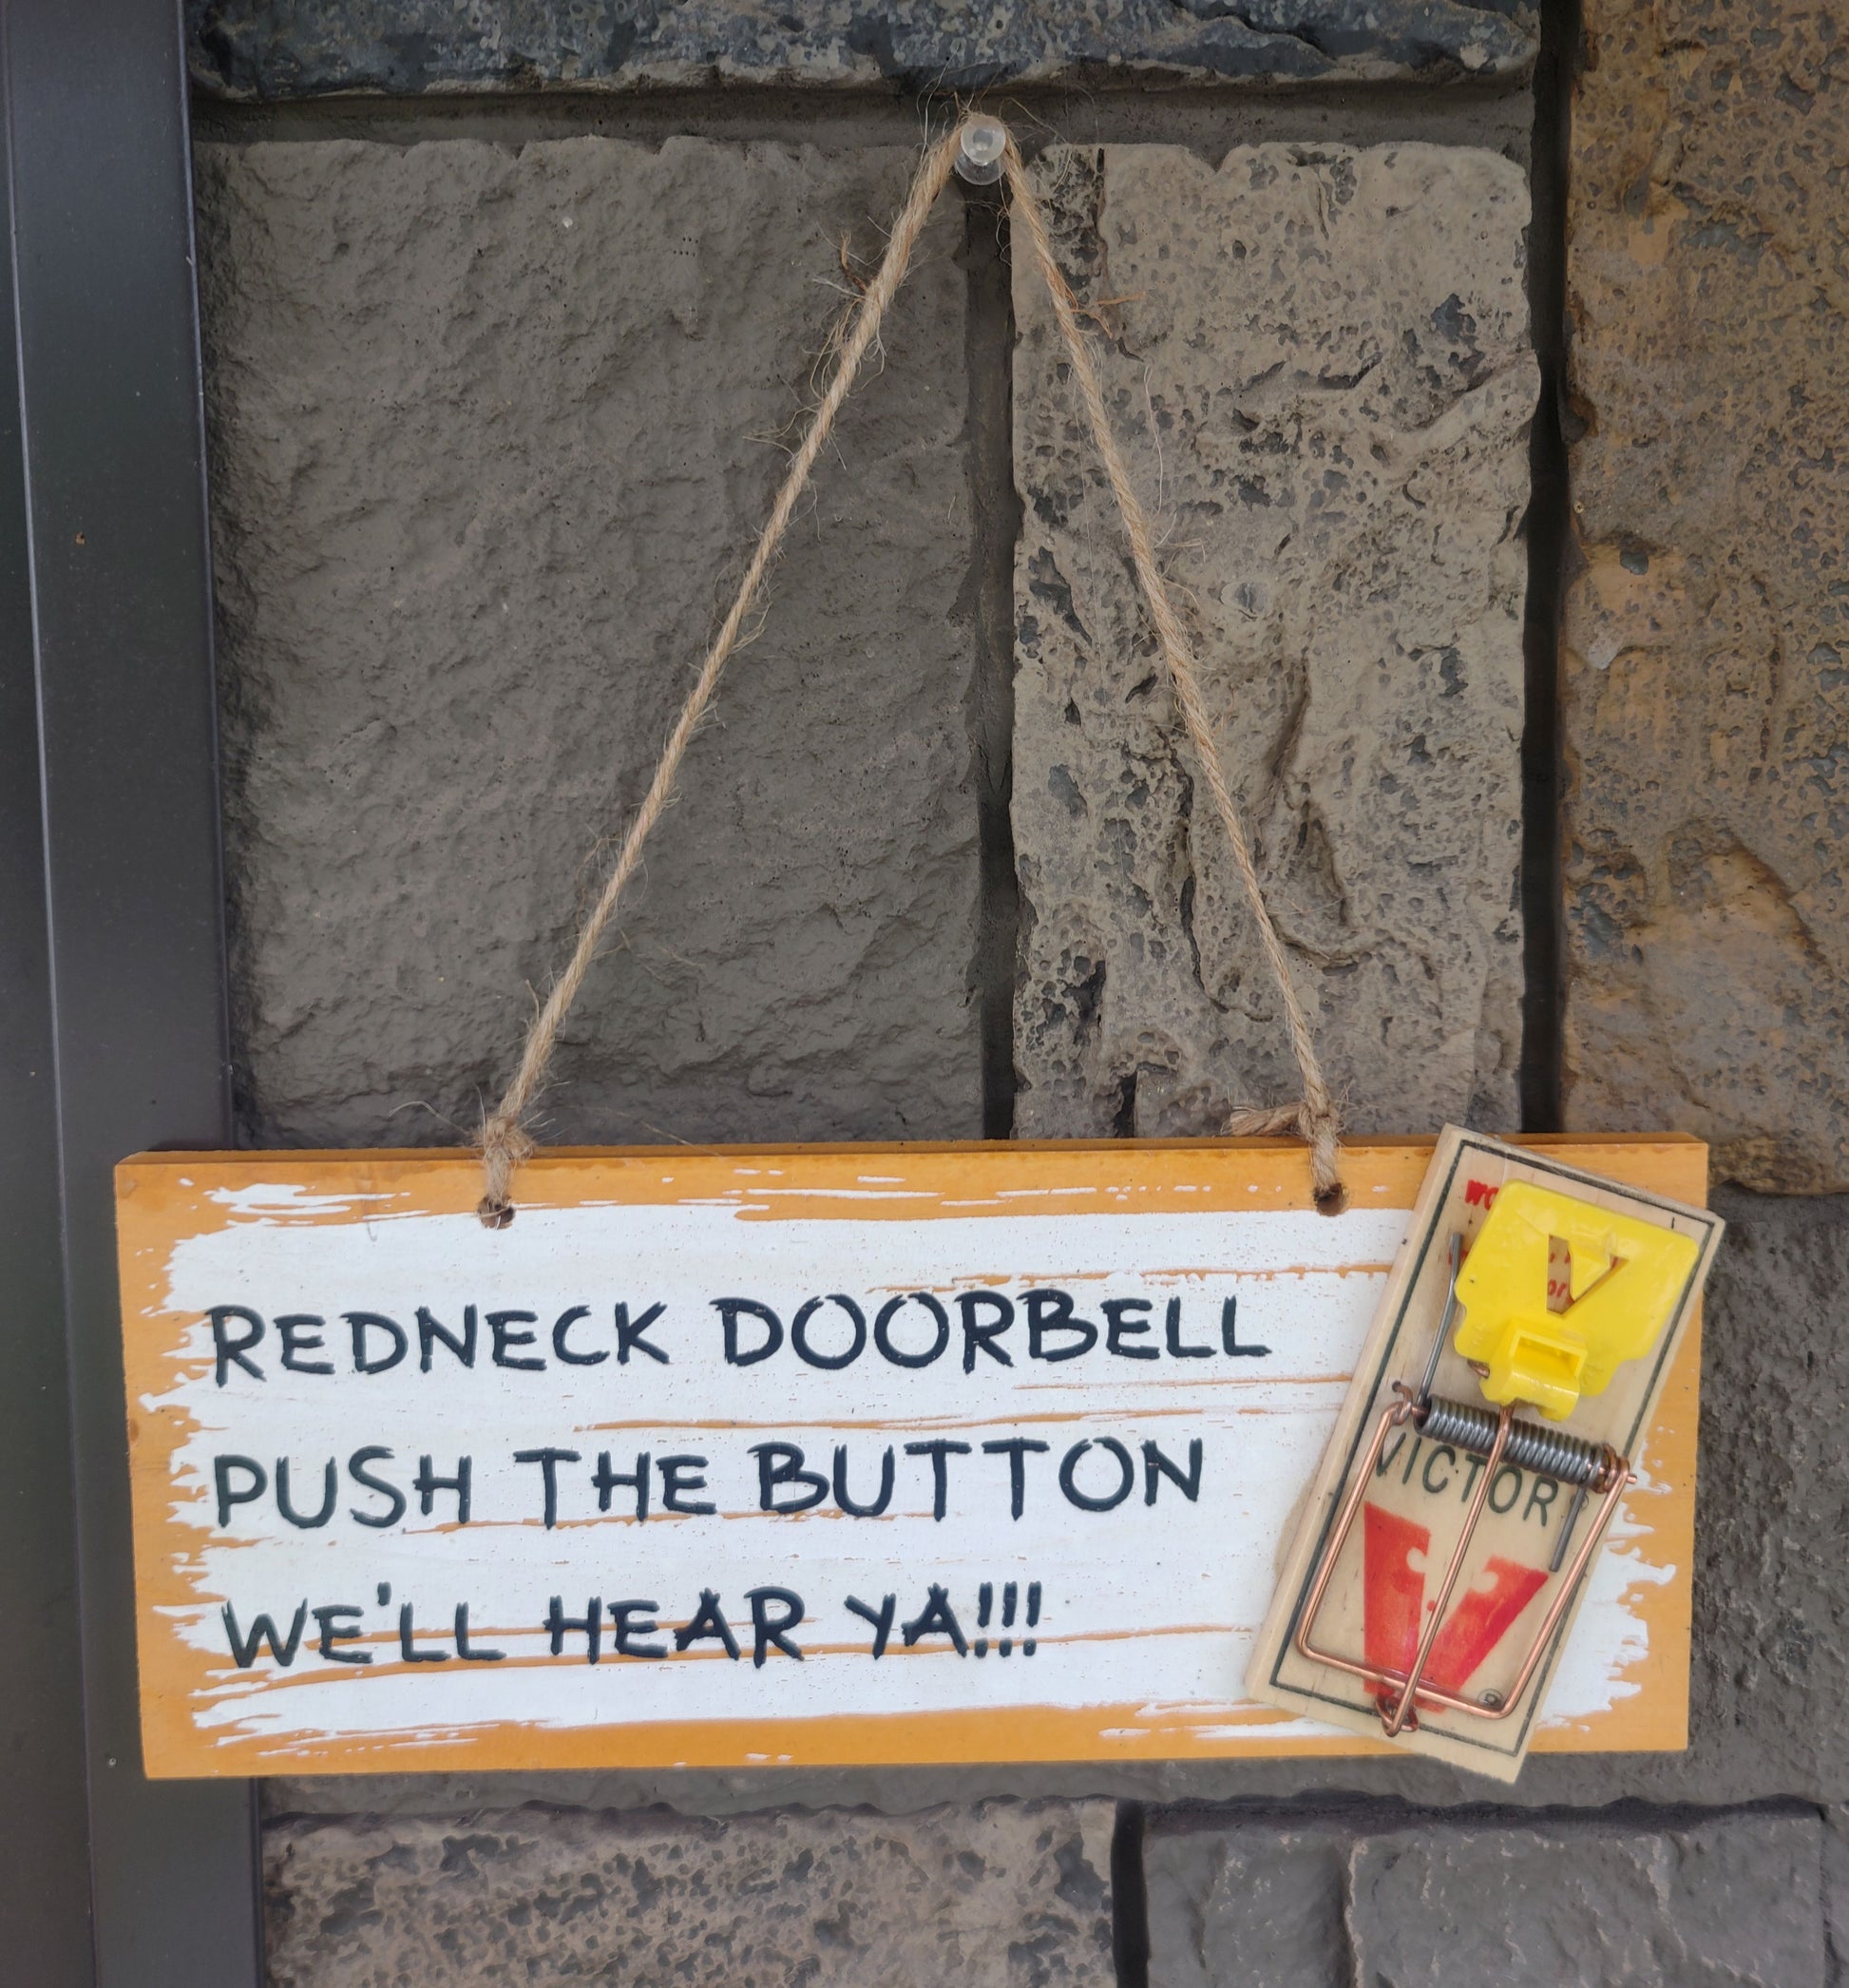 REDNECK DOORBELL
PUSH THE BUTTON
WE'LL HEAR YA!!!
V
VICTOR
V
®